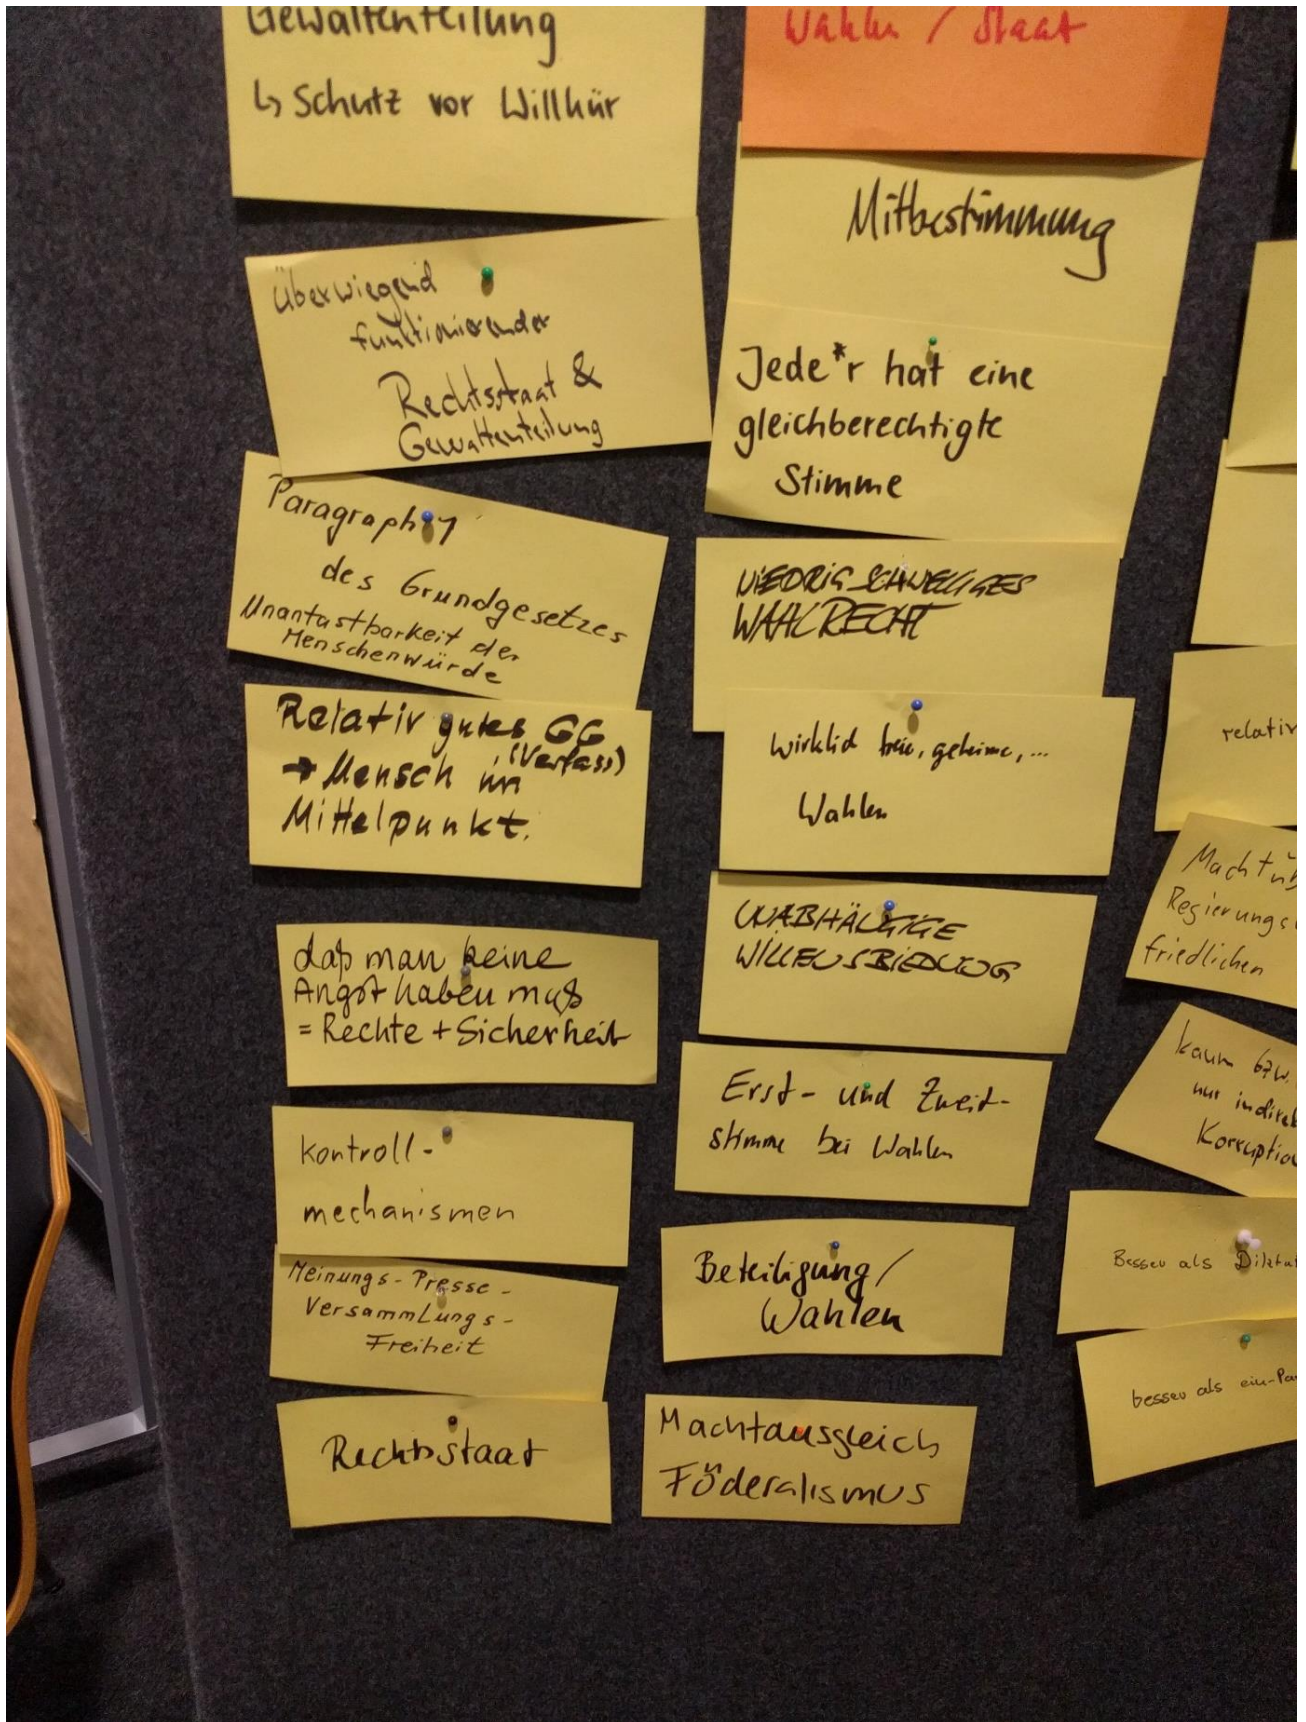 Gewaltenteilung
↳ Schutz vor Willkür
Überwiegend
funktionierender
Rechtsstaat &
Gewaltenteilung
Paragraph 1
des Grundgesetzes
Unantastbarkeit der
Menschenwürde
Relativ gutes GG
(Verfass)
→ Mensch im
Mittelpunkt.
daß man keine
Angst haben muß
= Rechte + Sicherheit
Kontroll-
mechanismen
Meinungs-Presse-
Versammlungs-
Freiheit
Rechtsstaat
Wahlen / Staat
Mitbestimmung
Jede*r hat eine
gleichberechtigte
Stimme
NIEDRIGSCHWELLIGES
WAHLRECHT
Wirklich freie, geheime, ...
Wahlen
UNABHÄNGIGE
WILLENSBILDUNG
Erst- und Zweit-
stimme bei Wahlen
Beteiligung/
Wahlen
Machtausgleich
Föderalismus
relativ
Machtüb
Regierungs
friedlichen
kaum bzw.
nur indirek
Korruptio
Besser als Diktat
besser als ein-Pa